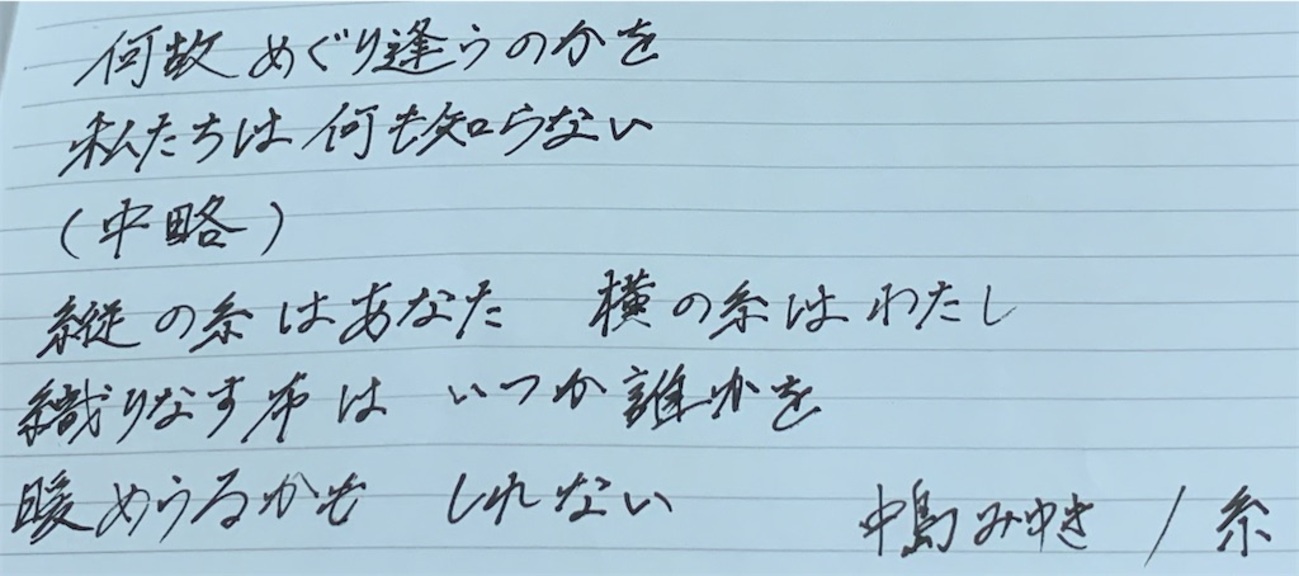 何故めぐり逢うのかを
私たちは何も知らない
(中略)
縦の糸はあなた 横の糸はわたし
織りなす布は いつか誰かを
暖めうるかも しれない
中島みゆき / 糸